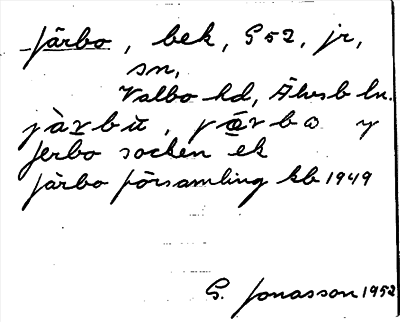 Järbo, bek, G52, jr,
sn,
Valbo hd, Älvsb ln.
jàrbù, jǽrbo y
Jerbo socken ek
Järbo församling kb 1949
G. Jonasson 1952